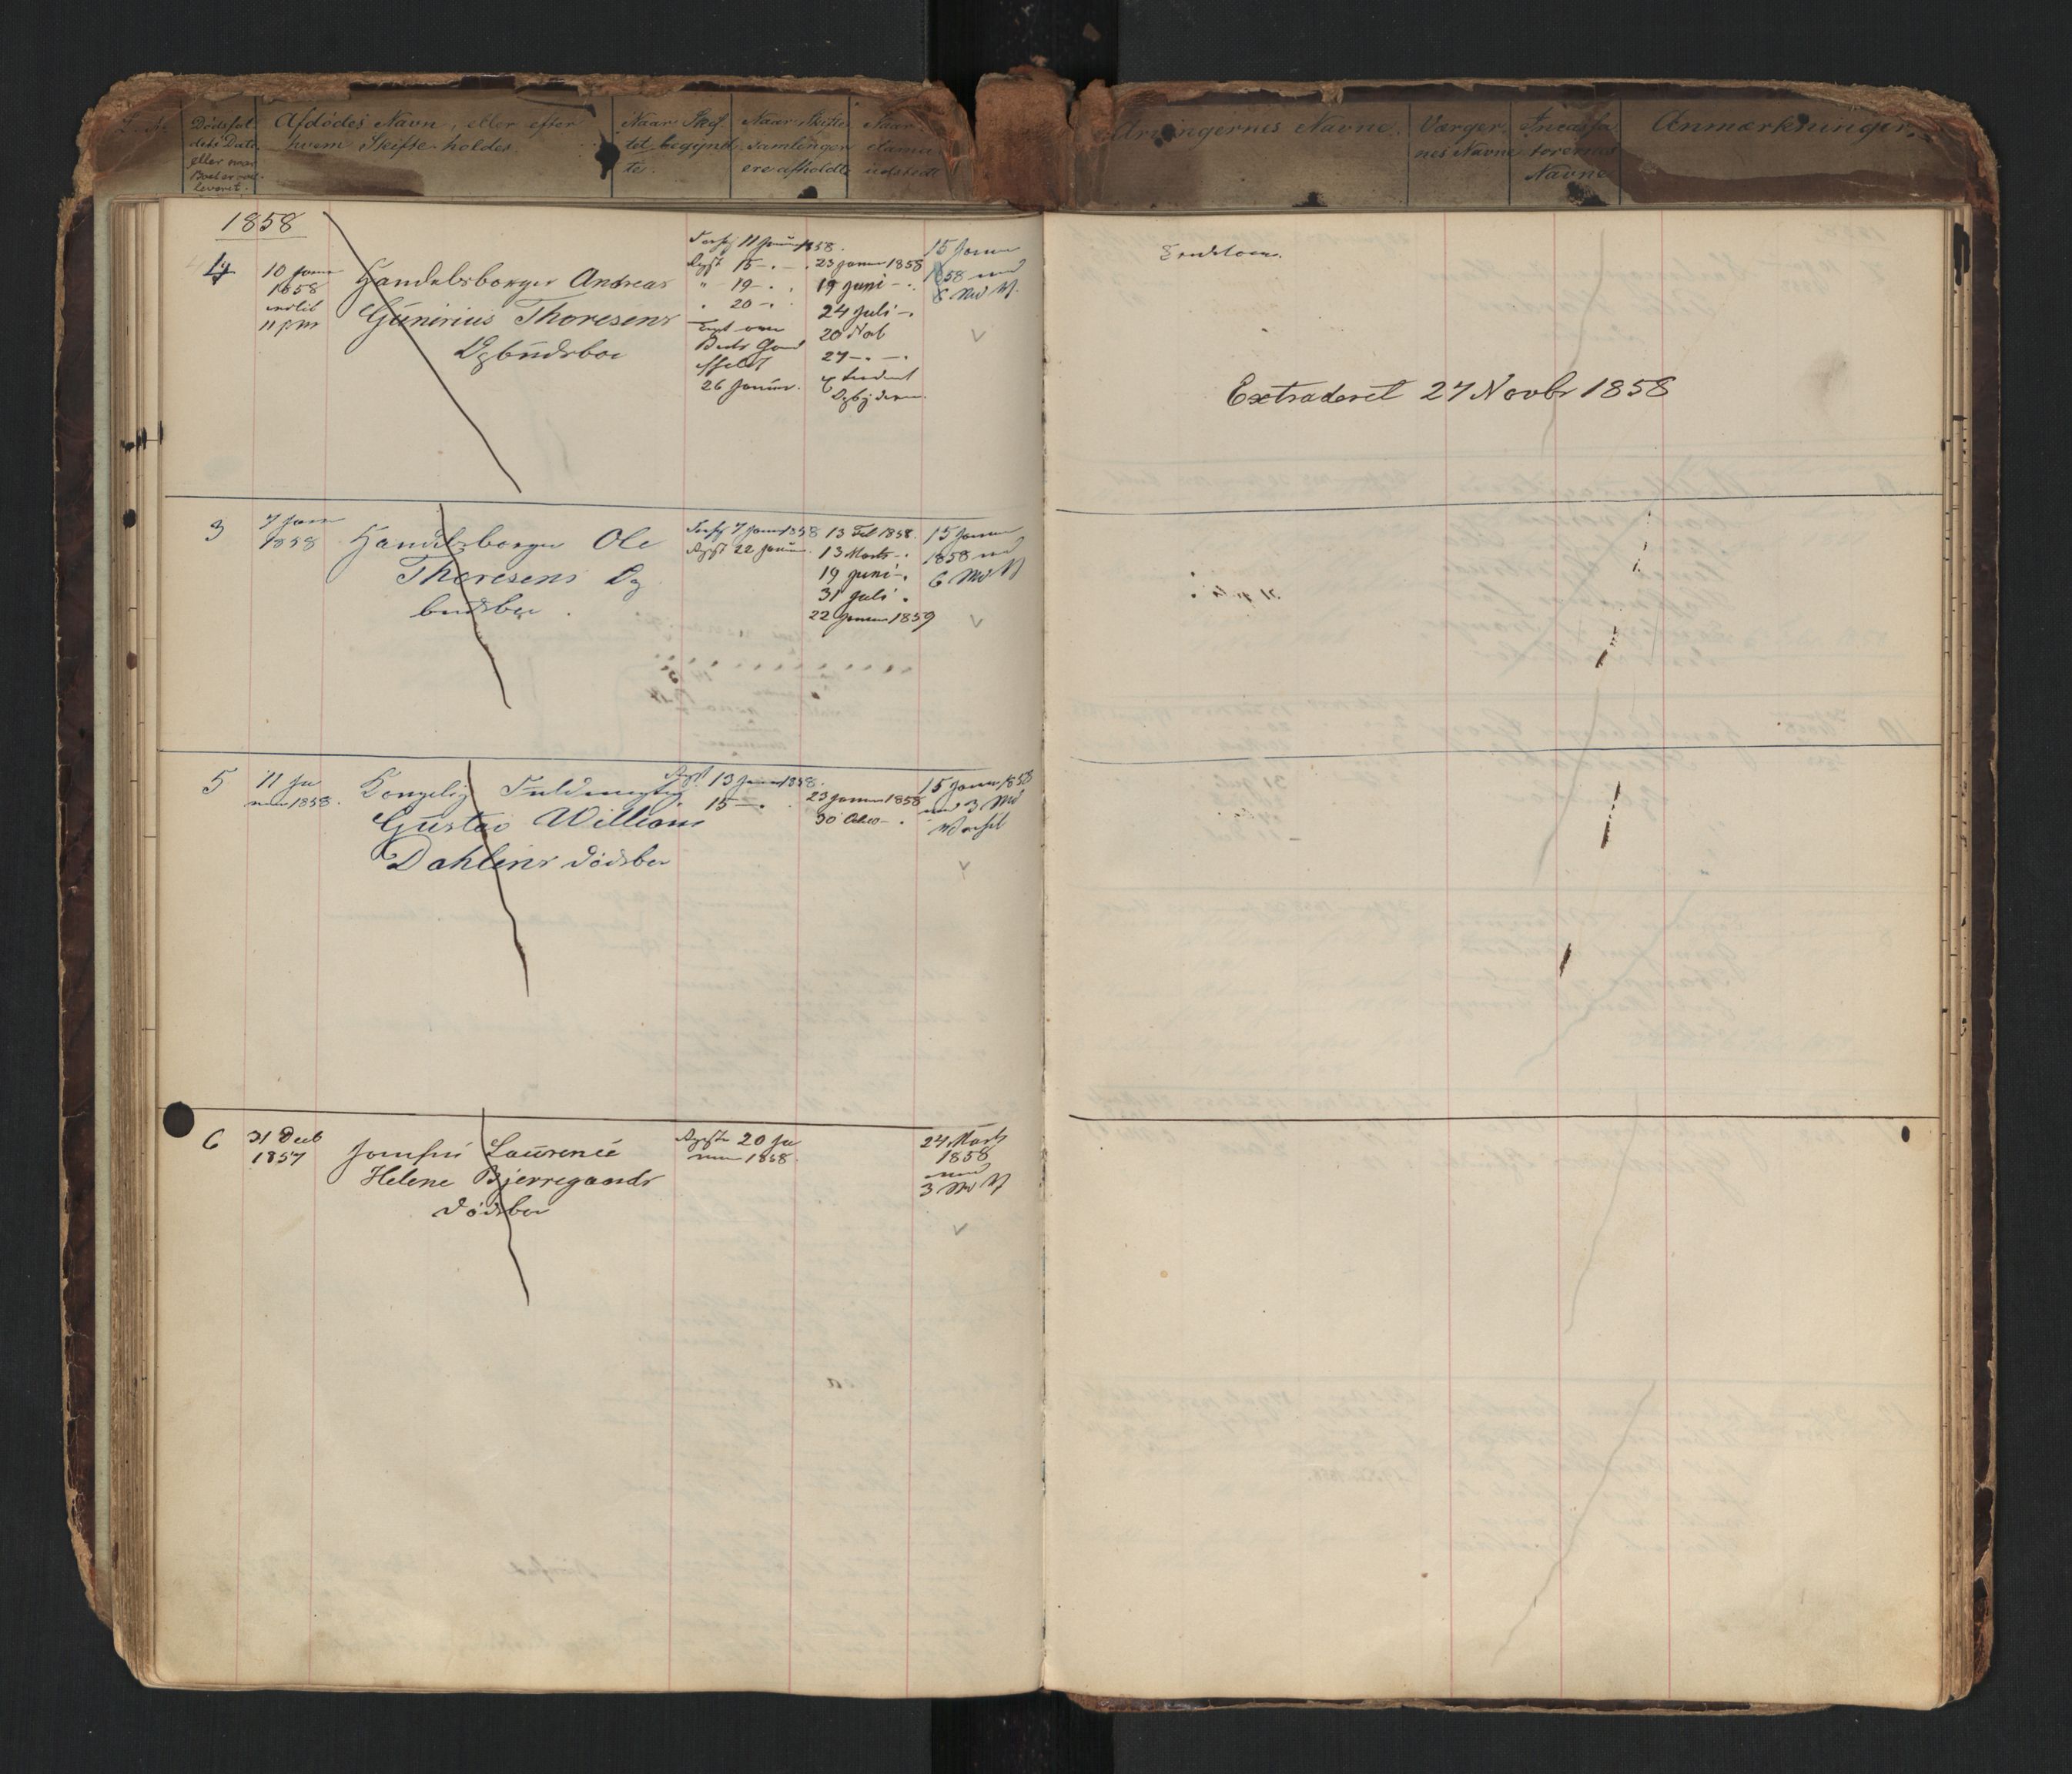 Dødsfal-
dets Dato
eller naar
Boet er ud-
leveret.
Afdødes Navn, eller efter
hvem Skifte holdes.
Naar Skif
tet begynd
te.
Naar Skifte
samlinger
ere afholdte
Naar
udstedt
Arvingernes Navne.
Værger
nes Navne
Incassa
torernes
Navne
Anmærkninger.
1858
4
10 Janr
1858
indtil
11 Janr
Handelsborger Andreas
Gunerius Thoresens
Opbudsboe
Forsf 11 Januar 1858.
Regst 15 — . — .
" 19 — . .
. 20 — . .
26 Januar.
23 Januar 1858
19 Juni — .
24 Juli — .
20 Nob
27 — . — .
15 Januar
1858 med
6 Md V.
Extraderet 27 Novbr 1858
3
7 Janr
1858
Handelsborger Ole
Thoresens Op
budsboe .
Forsf 7 Janr 1858
Regst 22 Januar.
13 Feb 1858.
13 Marts — .
19 Juni — .
31 Juli .
22 Januar 1859
15 Januar
1858 med
6 Md V
5
11 Ja
nuar 1858.
Kongelig Fuldmægtig
Gustav William
Dahlens Dødsboe
Regst 13 Januar 1858.
15 — .
23 Januar 1858
30 .
15 Januar 1858
med 3 Md
Varsel
6
31 Decb
1857
Jomfru Laurence
Helene Bjerregaards
Dødsboe
Regst 20 Ja
nuar 1858.
24 Marts
1858
med
3 Md V